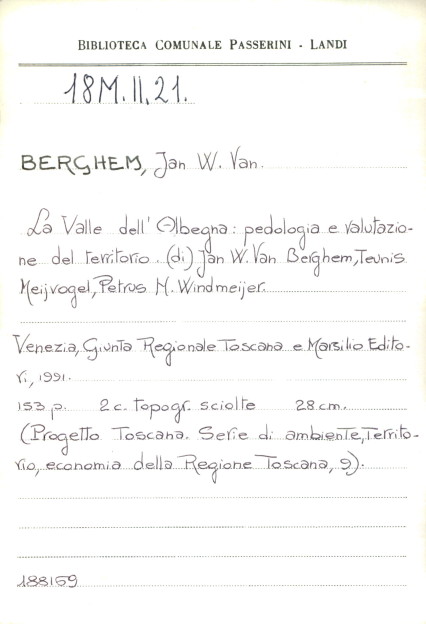 BIBLIOTECA COMUNALE PASSERINI - LANDI
18M.II.21.
BERGHEM, Jan W. Van.
La Valle dell'Albegna: pedologia e valutazio-
ne del territorio. (di) Jan W. Van Berghem, Teunis
Meijvogel, Petrus M. Windmeijer.
Venezia, Giunta Regionale Toscana e Marsilio Edito-
ri, 1991.
153 p. 2 c. topogr. sciolte 28 cm.
(Progetto Toscana. Serie di ambiente, Territo-
rio, economia della Regione Toscana, 9).
188159